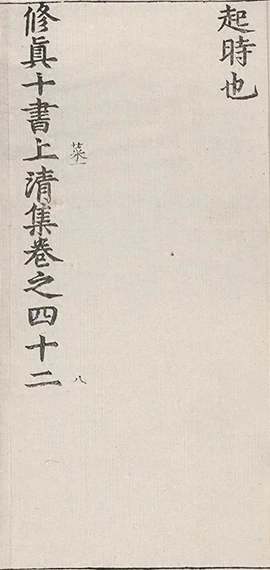 起時也
菜一 八
修真十書上清集卷之四十二